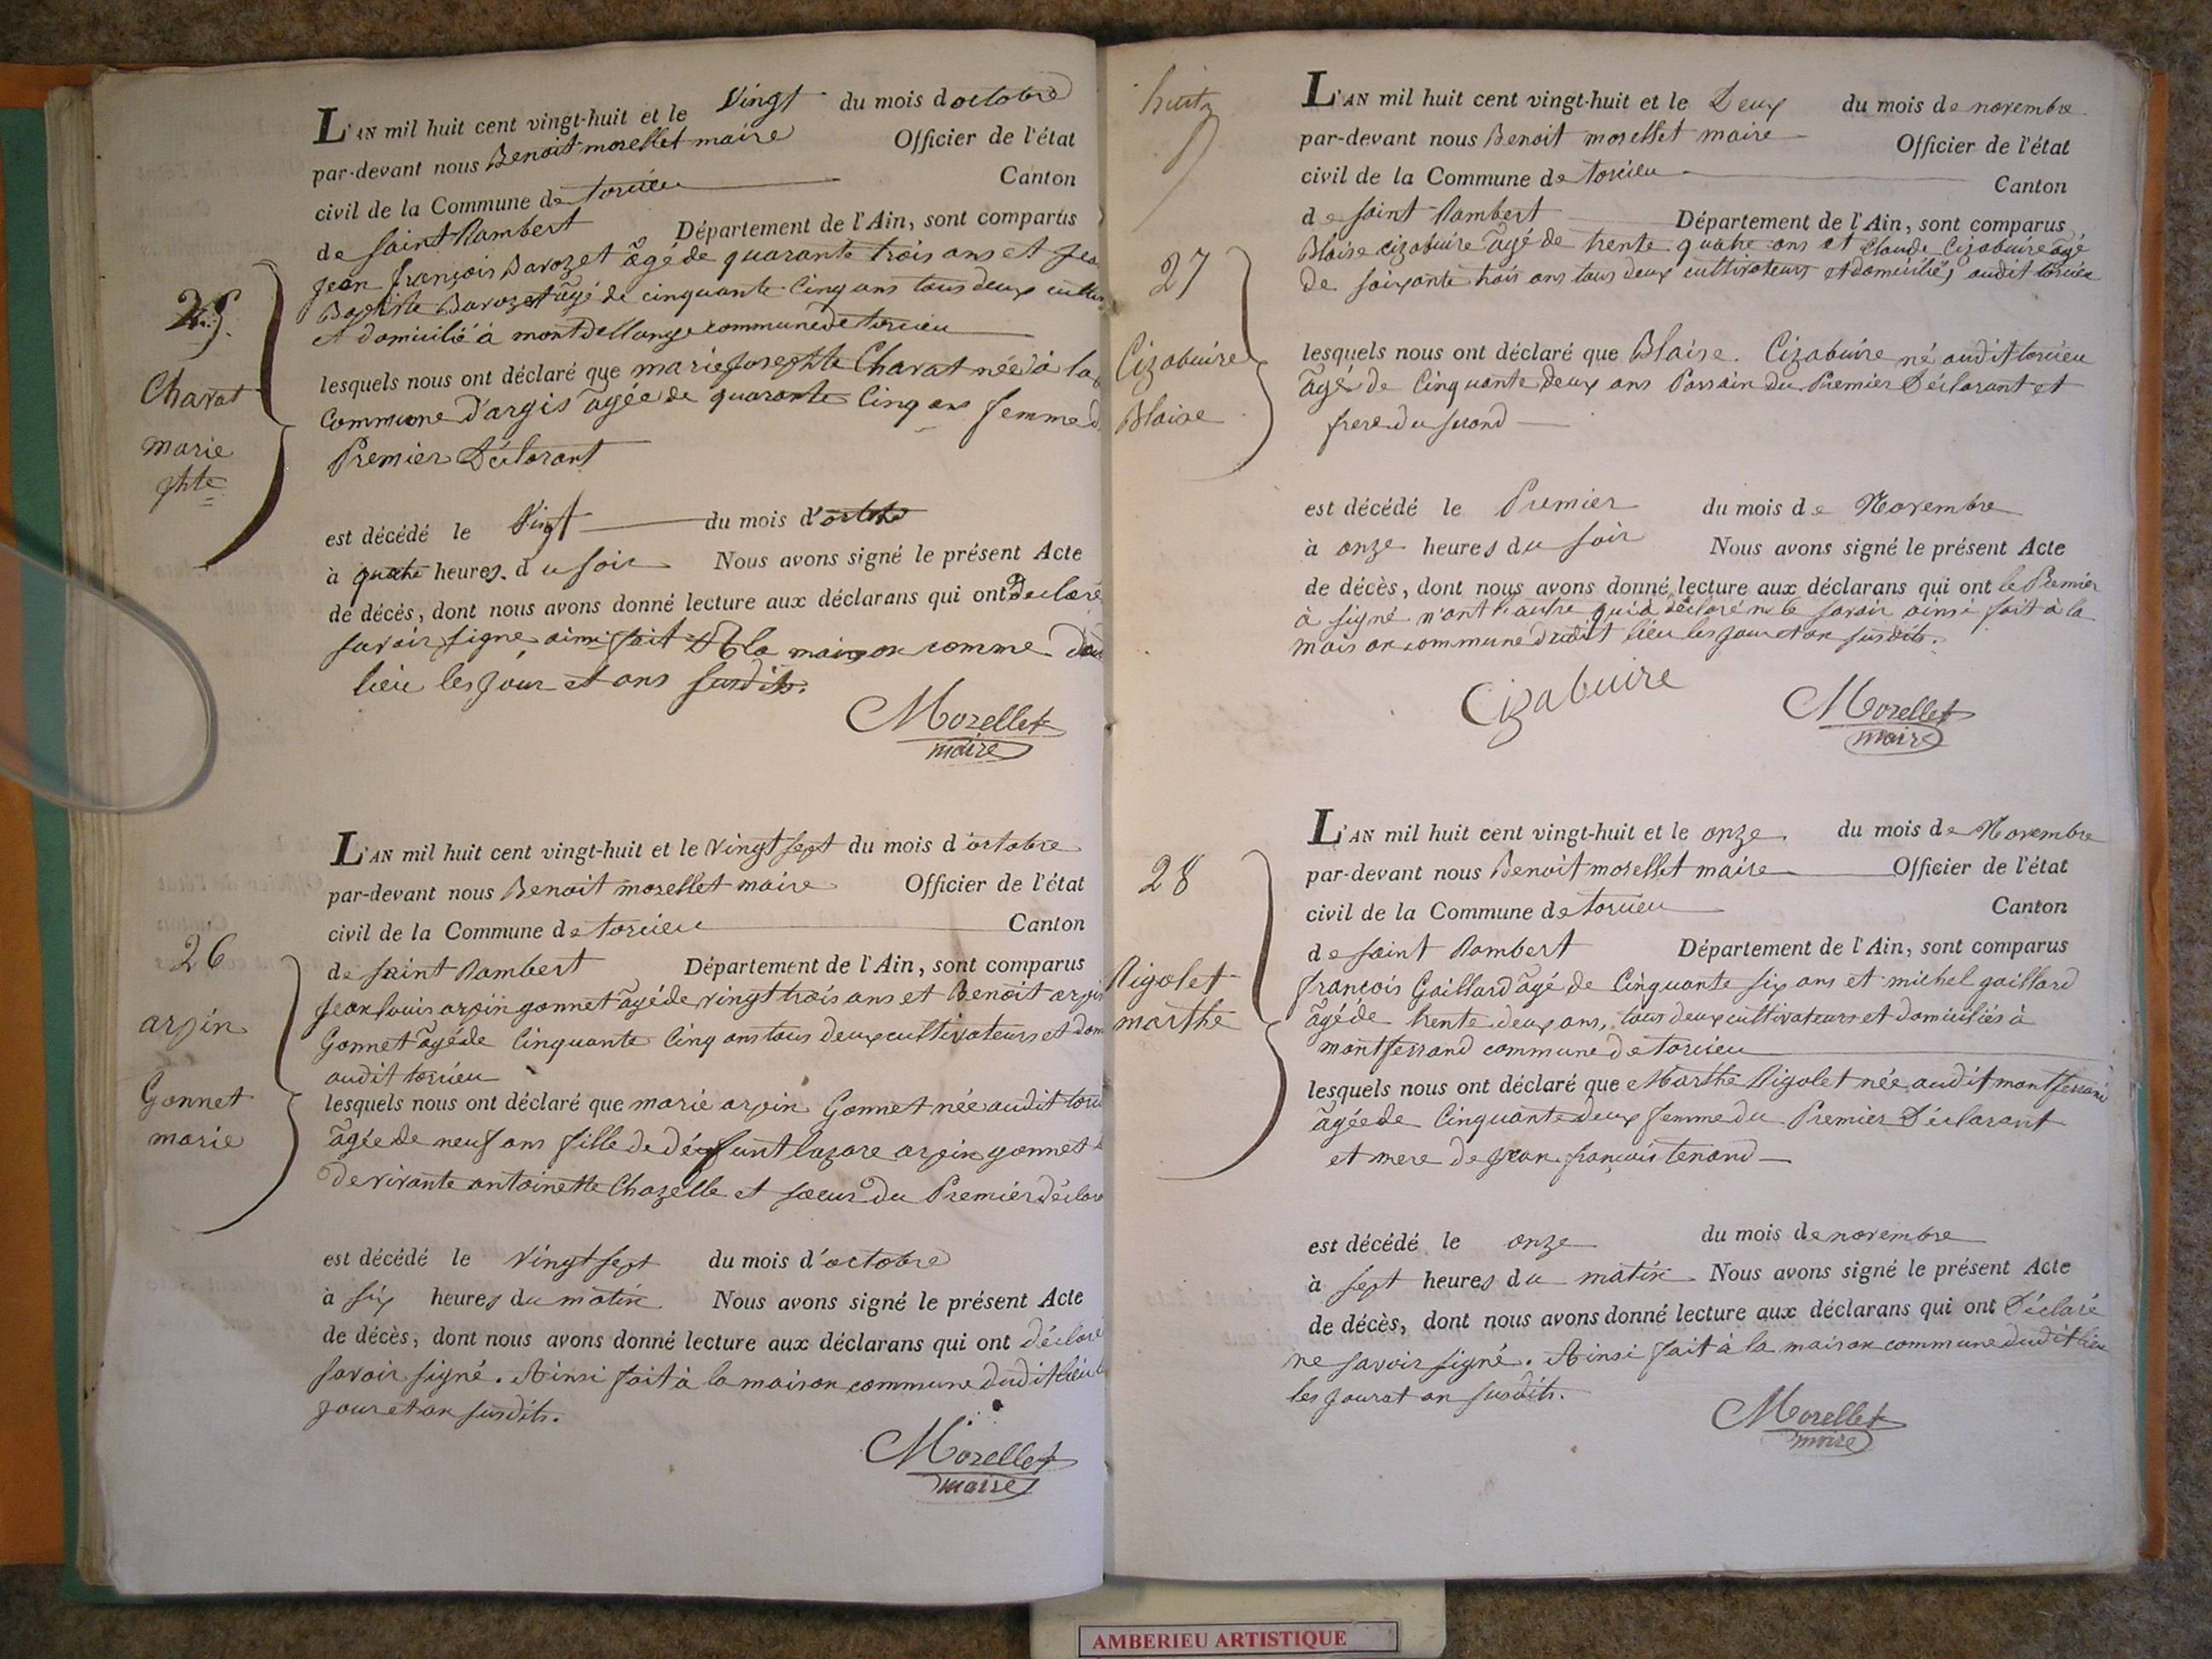 25
Chavat
marie
phte
L'AN mil huit cent vingt-huit et le Vingt du mois d octobre
par-devant nous Benoit morellet maire Officier de l'état
civil de la Commune de torcieu Canton
de Saint Rambert Département de l'Ain, sont comparus
jean françois Barozet âgé de quarante trois ans et jea
Baptiste Barozet âgé de cinquante Cinq ans tous deux culti
et domicilié à montdellange commune de torcieu
lesquels nous ont déclaré que marie josephte Chavat née à la
Commune d'argis âgée de quarante Cinq ans femme d
Premier Déclarant
est décédé le Vingt du mois d'octobre
à quatre heures du soir Nous avons signé le présent Acte
de décès, dont nous avons donné lecture aux déclarans qui ont declaré
savoir signe ainsi fait à la maison comme dud
lieu les jour et ans susdits.
Morellet
maire
26
arpin
Gonnet
marie
L'AN mil huit cent vingt-huit et le Vingt sept du mois d'octobre
par-devant nous Benoit morellet maire Officier de l'état
civil de la Commune de torcieu Canton
de saint Rambert Département de l'Ain, sont comparus
jean louis arpin gonnet âgé de vingt trois ans et Benoit arpin
Gonnet âgé de Cinquante Cinq ans tous deux cultivateurs et dom
audit torcieu
lesquels nous ont déclaré que marie arpin Gonnet née audit torci
âgée de neuf ans fille de défunt lazare arpin gonnet
de vivante antoinette Chazelle et soeur du Premier déclara
est décédé le Vingt sept du mois d'octobre
à six heures du matin Nous avons signé le présent Acte
de décès, dont nous avons donné lecture aux déclarans qui ont déclaré
savoir signé. Ainsi fait à la maison commune dudit lieu l
jour et an susdits.
Morellet
maire
huit
27
Cizabuire
Blaise
L'AN mil huit cent vingt-huit et le Deux du mois de novembre
par-devant nous Benoit morellet maire Officier de l'état
civil de la Commune de torcieu Canton
de saint Rambert Département de l'Ain, sont comparus
Blaise cizabuire âgé de trente quatre ans et Claude Cizabuire âgé
de soixante trois ans tous deux cultivateurs et domiciliés audit torcieu
lesquels nous ont déclaré que Blaise. Cizabuire né audit torcieu
âgé de Cinquante deux ans Parrain du Premier Déclarant et
frere du second
est décédé le Premier du mois de Novembre
à onze heures du soir Nous avons signé le présent Acte
de décès, dont nous avons donné lecture aux déclarans qui ont le Premier
à signé l'autre qui a déclaré ne le savoir ainsi fait à la
maison commune dudit lieu les jour et an susdits.
Cizabuire
Morellet
maire
28
Rigolet
marthe
L'AN mil huit cent vingt-huit et le onze du mois de Novembre
par-devant nous Benoit morellet maire Officier de l'état
civil de la Commune de torcieu Canton
de saint Rambert Département de l'Ain, sont comparus
françois Gaillard âgé de Cinquante six ans et michel gaillard
âgé de trente deux ans, tous deux cultivateurs et domiciliés à
montferrand commune de torcieu
lesquels nous ont déclaré que Marthe Rigolet née audit montferrand
âgée de Cinquante deux femme du Premier Déclarant
et mere de jean françois tenand
est décédé le onze du mois de novembre
à sept heures du matin Nous avons signé le présent Acte
de décès, dont nous avons donné lecture aux déclarans qui ont Déclaré
ne savoir signé. Ainsi fait à la maison commune dudit lieu
les jour et an susdits.
Morellet
maire
AMBERIEU ARTISTIQUE